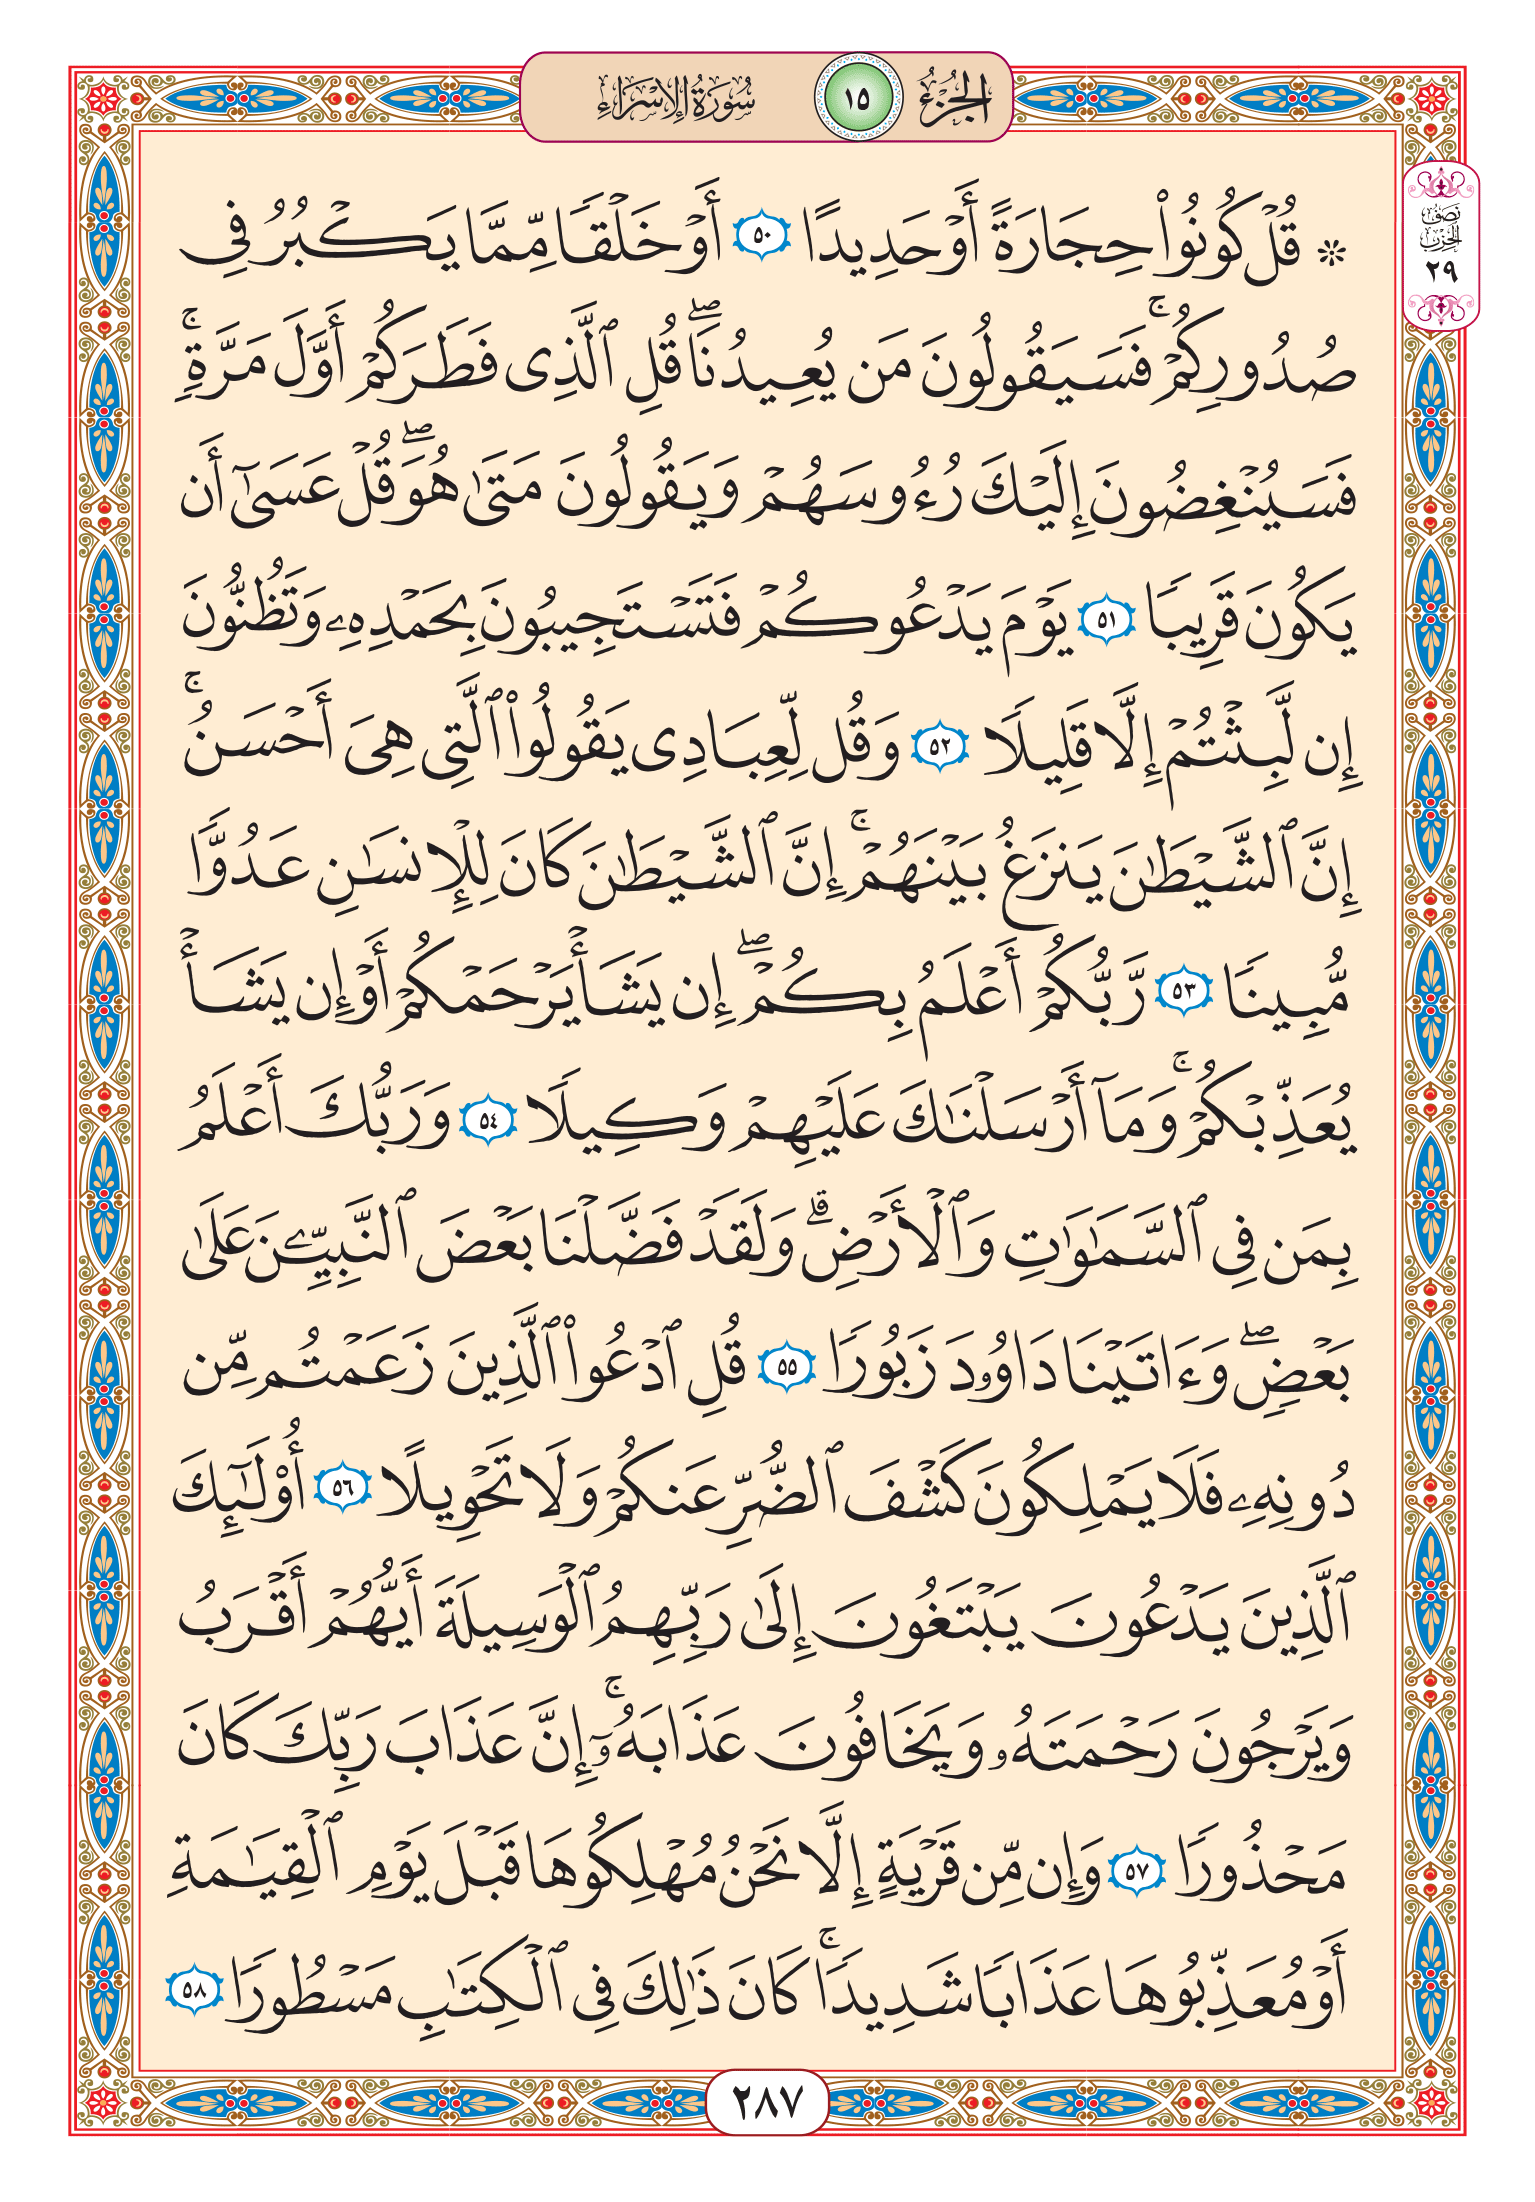 الجزء ١٥ سورة الإسراء
نصف
الحزب
٢٩
۞ قُلْ كُونُوا۟ حِجَارَةً أَوْ حَدِيدًا ٥٠ أَوْ خَلْقًا مِّمَّا يَكْبُرُ فِى
صُدُورِكُمْ ۚ فَسَيَقُولُونَ مَن يُعِيدُنَا ۖ قُلِ ٱلَّذِى فَطَرَكُمْ أَوَّلَ مَرَّةٍ ۚ
فَسَيُنْغِضُونَ إِلَيْكَ رُءُوسَهُمْ وَيَقُولُونَ مَتَىٰ هُوَ ۖ قُلْ عَسَىٰٓ أَن
يَكُونَ قَرِيبًا ٥١ يَوْمَ يَدْعُوكُمْ فَتَسْتَجِيبُونَ بِحَمْدِهِۦ وَتَظُنُّونَ
إِن لَّبِثْتُمْ إِلَّا قَلِيلًا ٥٢ وَقُل لِّعِبَادِى يَقُولُوا۟ ٱلَّتِى هِىَ أَحْسَنُ ۚ
إِنَّ ٱلشَّيْطَٰنَ يَنزَغُ بَيْنَهُمْ ۚ إِنَّ ٱلشَّيْطَٰنَ كَانَ لِلْإِنسَٰنِ عَدُوًّا
مُّبِينًا ٥٣ رَّبُّكُمْ أَعْلَمُ بِكُمْ ۖ إِن يَشَأْ يَرْحَمْكُمْ أَوْ إِن يَشَأْ
يُعَذِّبْكُمْ ۚ وَمَآ أَرْسَلْنَٰكَ عَلَيْهِمْ وَكِيلًا ٥٤ وَرَبُّكَ أَعْلَمُ
بِمَن فِى ٱلسَّمَٰوَٰتِ وَٱلْأَرْضِ ۗ وَلَقَدْ فَضَّلْنَا بَعْضَ ٱلنَّبِيِّۦنَ عَلَىٰ
بَعْضٍ ۖ وَءَاتَيْنَا دَاوُۥدَ زَبُورًا ٥٥ قُلِ ٱدْعُوا۟ ٱلَّذِينَ زَعَمْتُم مِّن
دُونِهِۦ فَلَا يَمْلِكُونَ كَشْفَ ٱلضُّرِّ عَنكُمْ وَلَا تَحْوِيلًا ٥٦ أُو۟لَٰٓئِكَ
ٱلَّذِينَ يَدْعُونَ يَبْتَغُونَ إِلَىٰ رَبِّهِمُ ٱلْوَسِيلَةَ أَيُّهُمْ أَقْرَبُ
وَيَرْجُونَ رَحْمَتَهُۥ وَيَخَافُونَ عَذَابَهُۥٓ ۚ إِنَّ عَذَابَ رَبِّكَ كَانَ
مَحْذُورًا ٥٧ وَإِن مِّن قَرْيَةٍ إِلَّا نَحْنُ مُهْلِكُوهَا قَبْلَ يَوْمِ ٱلْقِيَٰمَةِ
أَوْ مُعَذِّبُوهَا عَذَابًا شَدِيدًا ۚ كَانَ ذَٰلِكَ فِى ٱلْكِتَٰبِ مَسْطُورًا ٥٨
٢٨٧